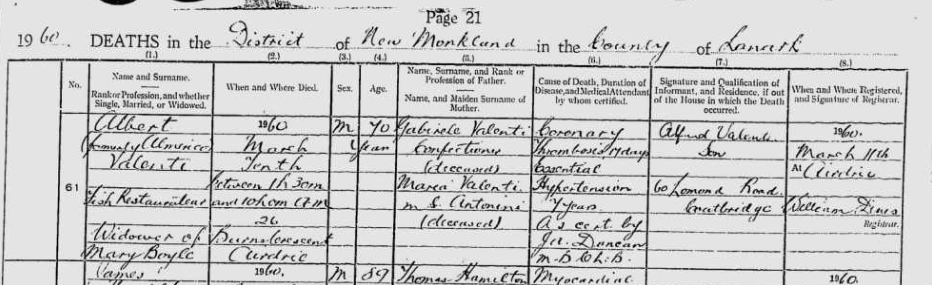 Page 21
1960. DEATHS in the District of New Monkland in the County of Lanark
(1.) (2.) (3.) (4.) (5.) (6.) (7.) (8.)
No.
Name and Surname.
Rank or Profession, and whether Single, Married, or Widowed.
When and Where Died.
Sex.
Age.
Name, Surname, and Rank or Profession of Father.
Name, and Maiden Surname of Mother.
Cause of Death, Duration of Disease, and Medical Attendant by whom certified.
Signature and Qualification of Informant, and Residence, if out of the House in which the Death occurred.
When and Where Registered, and Signature of Registrar.
61
Albert
(formerly Almerico)
Valenti
Fish Restaurateur
Widower of
Mary Boyle
1960
March
Tenth
between 1h 30m
and 10h 0m A M
26
Burns Crescent
Airdrie
M
70
Years
Gabriele Valenti
Confectioner
(deceased)
Maria Valenti
m.S. Antonini
(deceased)
Coronary
Thrombosis 17 days
Essential
Hypertension
7 years
As cert by
Jn. Duncan
M.B Ch.B.
Alfred Valente
Son
60 Lomond Road
Coatbridge
1960.
March 11th
At Airdrie
William
Registrar.
James
1960.
M
89
Thomas Hamilton
Myocardial
1960